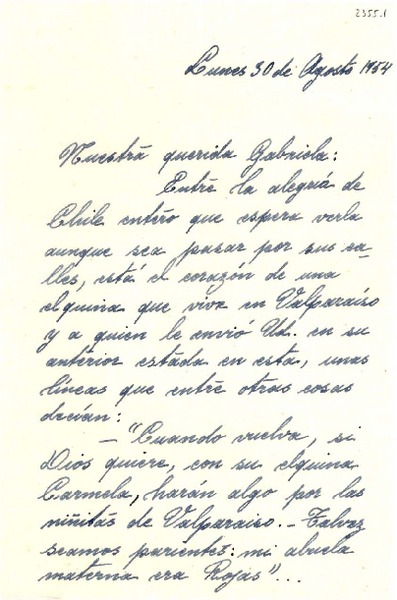 2355.1
Lunes 30 de Agosto 1954
Nuestra querida Gabriela:
Entre la alegría de
Chile entero que espera verla
aunque sea pasar por sus ca-
lles, está el corazón de una
elquina que vive en Valparaíso
y a quien le envió Ud. en su
anterior estada en esta, unas
líneas que entre otras cosas
decían:
– "Cuando vuelva, si
Dios quiere, con su elquina
Carmela, harán algo por las
niñitas de Valparaíso. – Talvez
seamos parientes: mi abuela
materna era Rojas"...